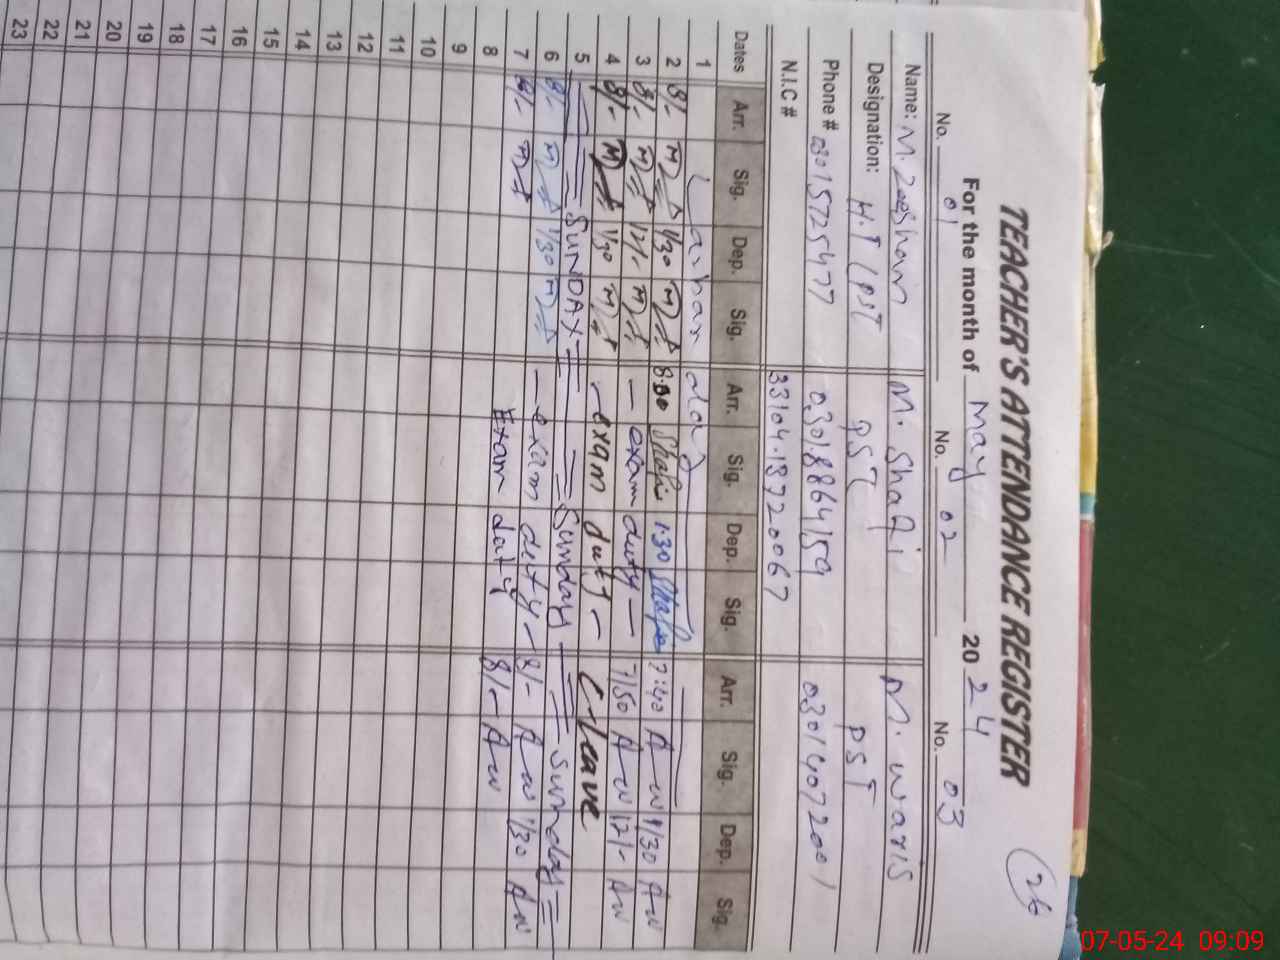 26
TEACHER'S ATTENDANCE REGISTER
For the month of May 2024
No. 01 No. 02 No. 03
Name: M. Zeeshan M. Shafi M. Waris
Designation: H.T / PST PST PST
Phone # 03015725477 03018864159 03014072001
N.I.C # 33104-1372006-7
Dates Arr. Sig. Dep. Sig. Arr. Sig. Dep. Sig. Arr. Sig. Dep. Sig.
1 Labour day
2 8/- 1/30 8:00 Shafi 1:30 Shafi 7:40
3 8/- 12/- exam duty 7/50 12/-
4 8/- 1/30 exam duty C-leave
5 SUNDAY Sunday Sunday
6 8/- 1/30 exam duty 8/- 1/30
7 8/- Exam duty 8/-
8
9
10
11
12
13
14
15
16
17
18
19
20
21
22
23
07-05-24 09:09